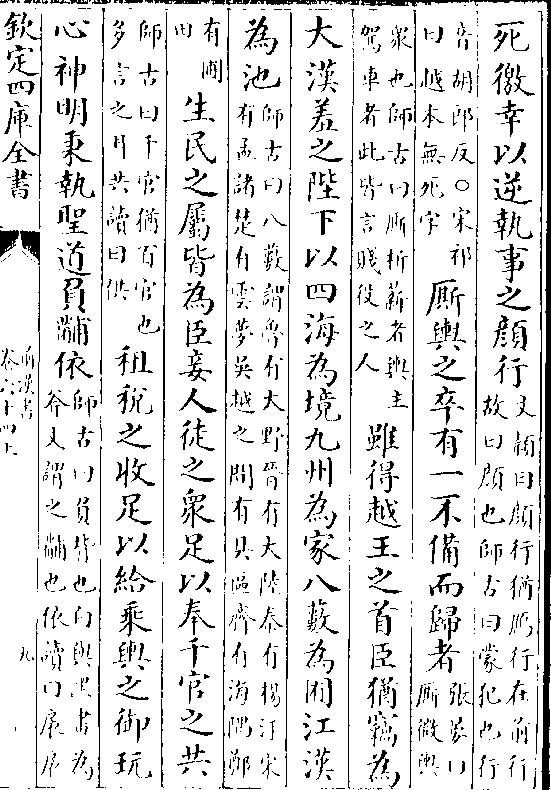 死徼幸以逆執事之顔行文穎曰顔行猶鴈行在前行
故曰顔也師古曰蒙犯也行
音胡郎反○宋祁
曰越本無死字
厮輿之卒有一不備而歸者張晏曰
厮微輿
衆也師古曰厮析薪者輿主
駕車者此皆言賤役之人
雖得越王之首臣猶竊為
大漢羞之陛下以四海為境九州為家八藪為囿江漢
為池師古曰八藪謂魯有大野晉有大陸秦有楊汙宋
有孟諸楚有雲夢吳越之間有具區齊有海隅鄭
有圃
田
生民之屬皆為臣妾人徒之衆足以奉千官之共
師古曰千官猶百官也
多言之耳共讀曰供
租稅之收足以給乘輿之御玩
心神明秉執聖道負黼依師古曰負背也白與黑畫為
斧文謂之黼也依讀曰扆扆
欽定四庫全書
前漢書
卷六十四上
九